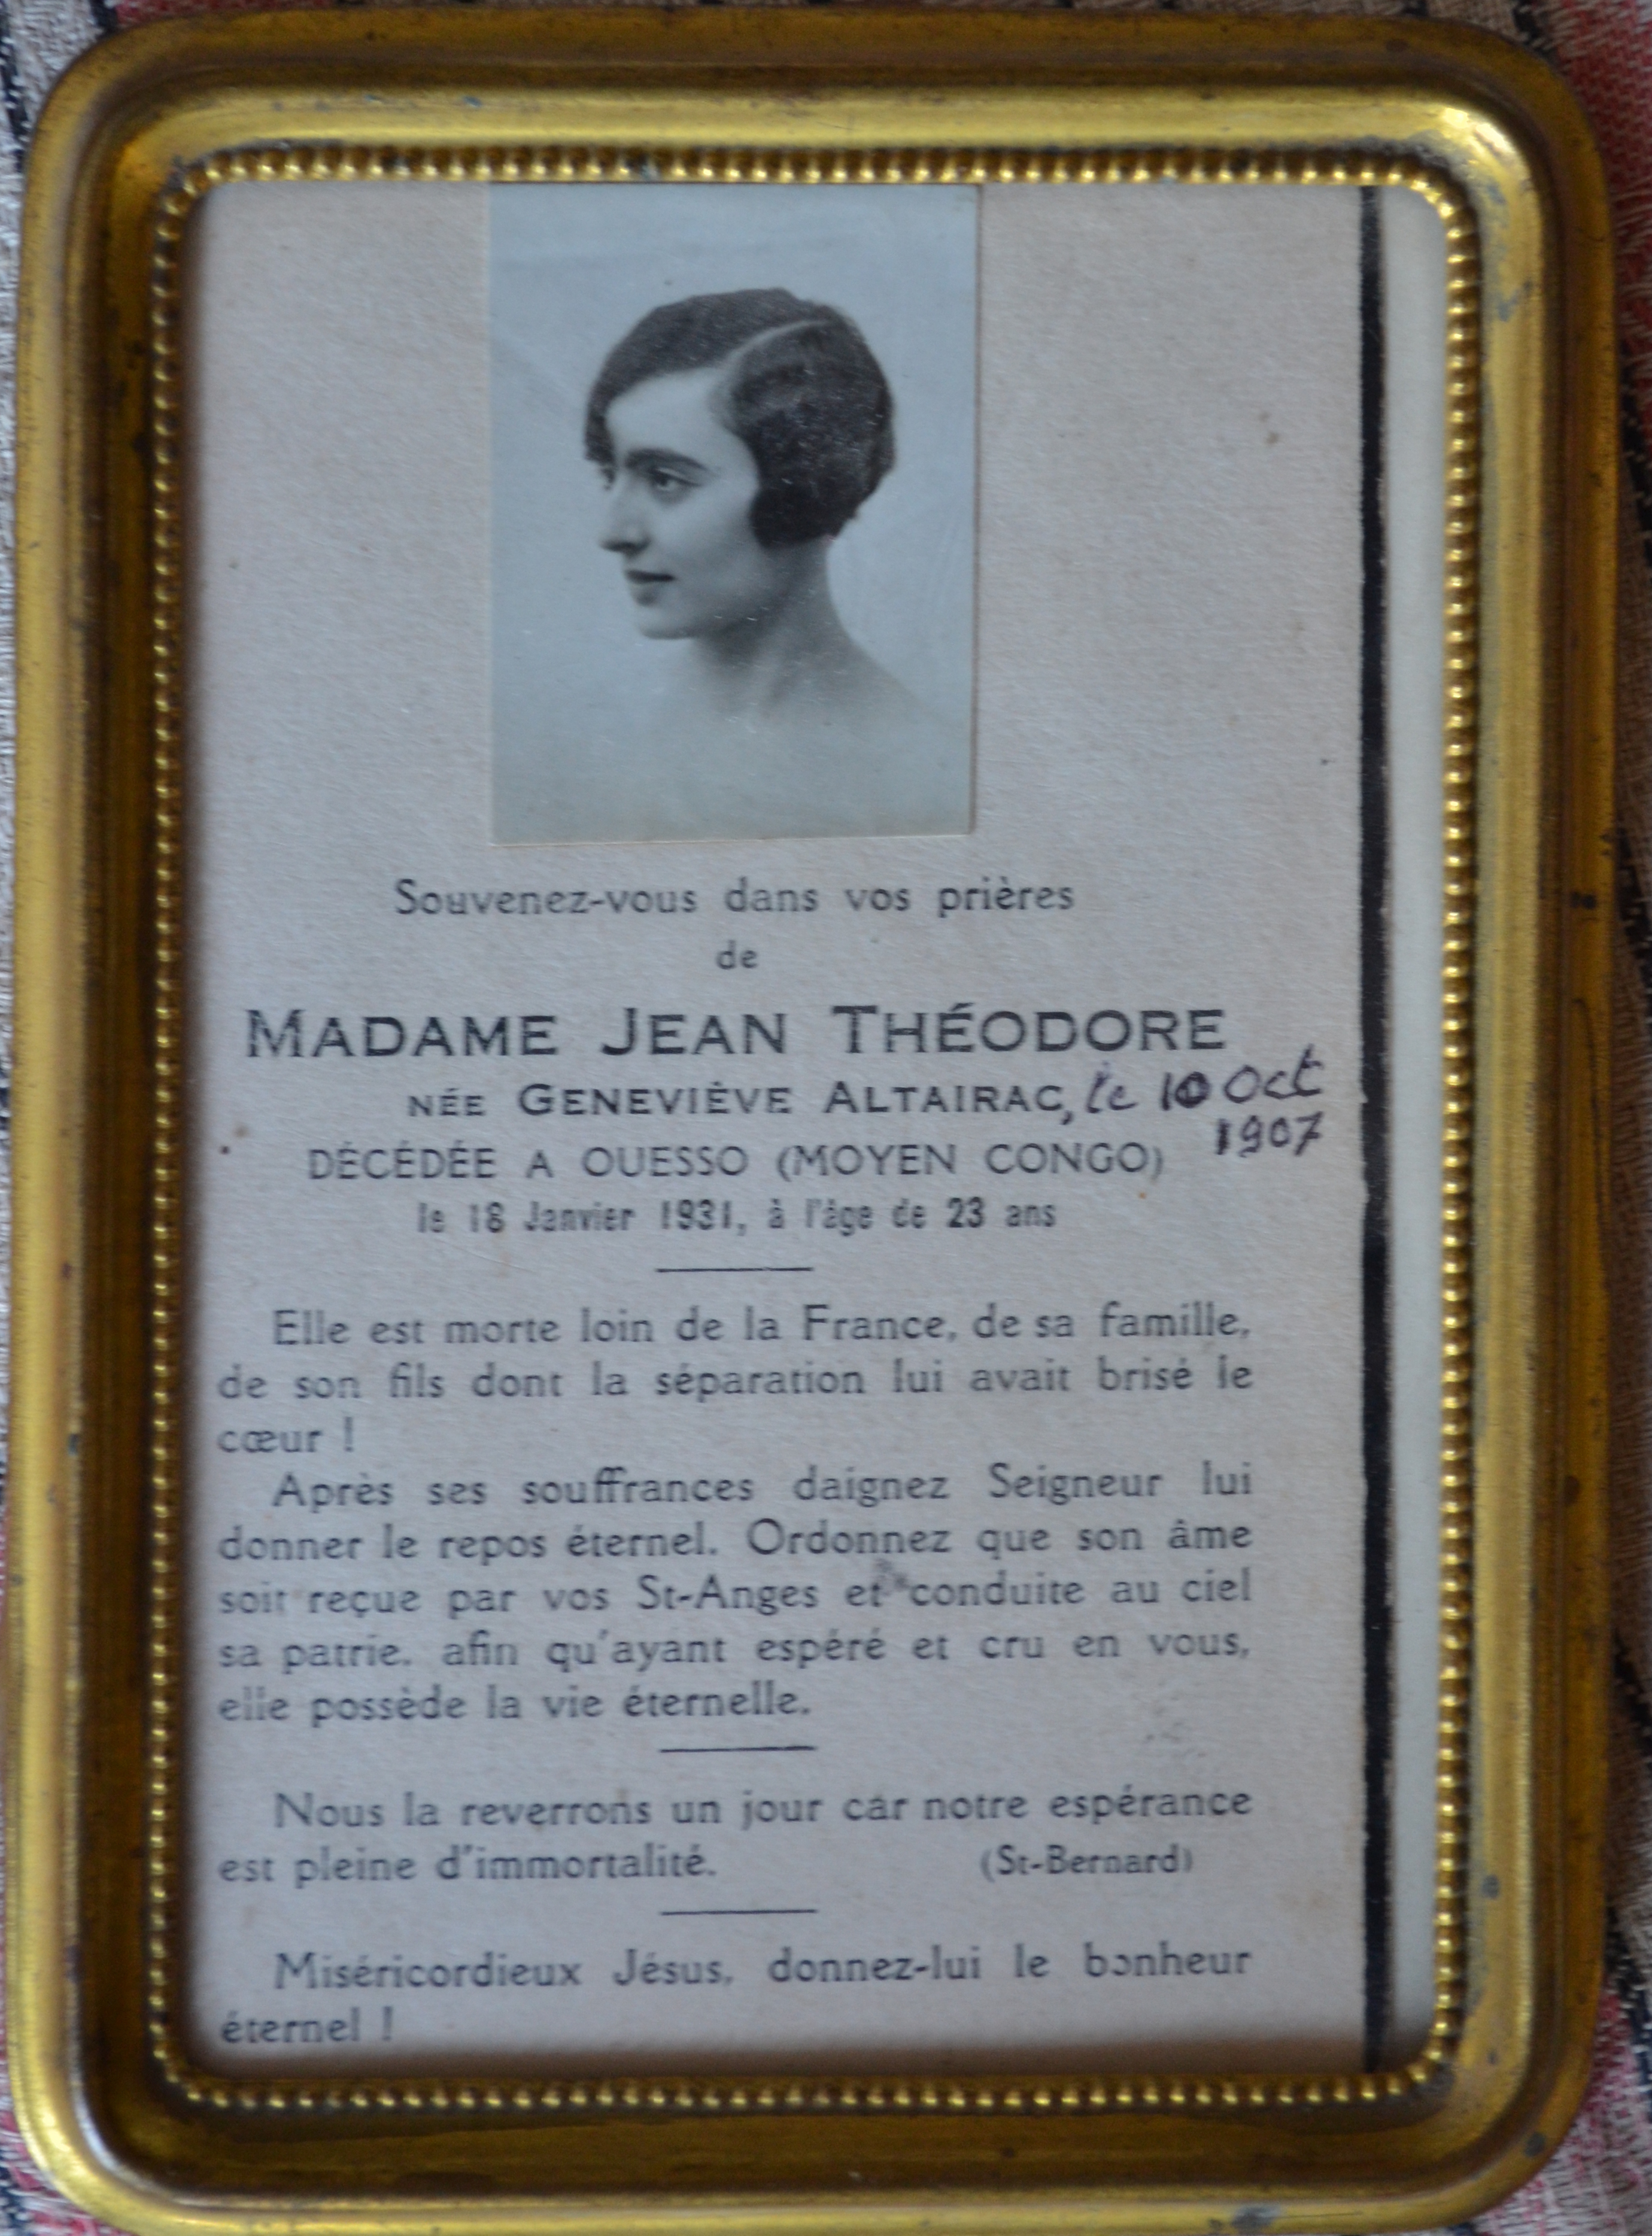 Souvenez-vous dans vos prières
de
MADAME JEAN THÉODORE
NÉE GENEVIÈVE ALTAIRAC, le 10 Oct
1907
DÉCÉDÉE A OUESSO (MOYEN CONGO)
le 18 Janvier 1931, à l'âge de 23 ans
Elle est morte loin de la France, de sa famille,
de son fils dont la séparation lui avait brisé le
cœur !
Après ses souffrances daignez Seigneur lui
donner le repos éternel. Ordonnez que son âme
soit reçue par vos St-Anges et conduite au ciel
sa patrie, afin qu'ayant espéré et cru en vous,
elle possède la vie éternelle.
Nous la reverrons un jour car notre espérance
est pleine d'immortalité. (St-Bernard)
Miséricordieux Jésus, donnez-lui le bonheur
éternel !